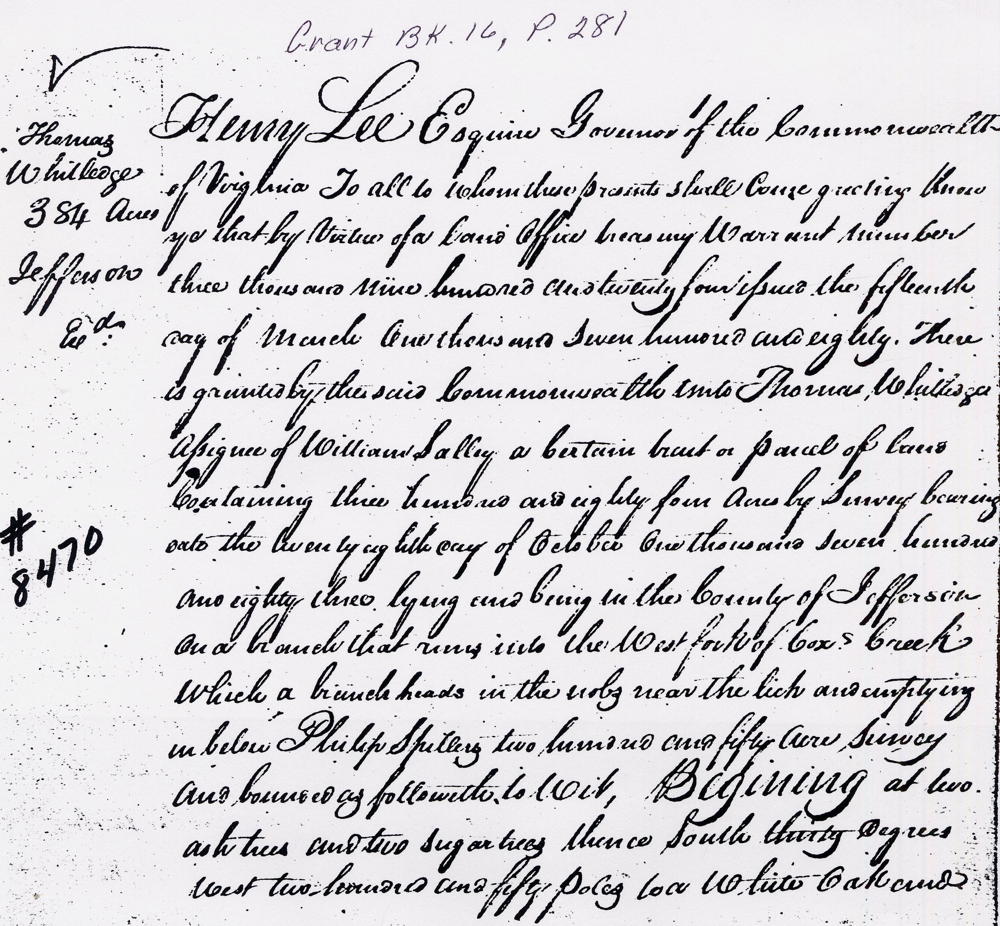 Grant BK. 16, P. 281
Thomas
Whitledge
384 Acres
Jefferson
Exd
#
8470
Henry Lee Esquire Governor of the Commonwealth
of Virginia To all to whom these presents shall Come greeting Know
ye that by Virtue of a Land Office treasury Warrant number
three thousand nine hundred and twenty four issued the fifteenth
day of March One thousand Seven hundred and eighty. There
is granted by the said Commonwealth unto Thomas Whitledge
Assignee of William Salley a Certain tract or parcel of land
Containing three hundred and eighty four Acres by Survey bearing
date the twenty eighth day of October One thousand seven hundred
and eighty three lying and being in the County of Jefferson
On a branch that runs into the West fork of Cox's Creek
Which a branch heads in the nobs near the lick and emptying
in below Philip Spillers two hundred and fifty Acre Survey
And bounded as followeth, to Wit, Begining at two
ash trees and two sugar trees thence South thirty Degrees
West two hundred and fifty Poles to a White Oak and